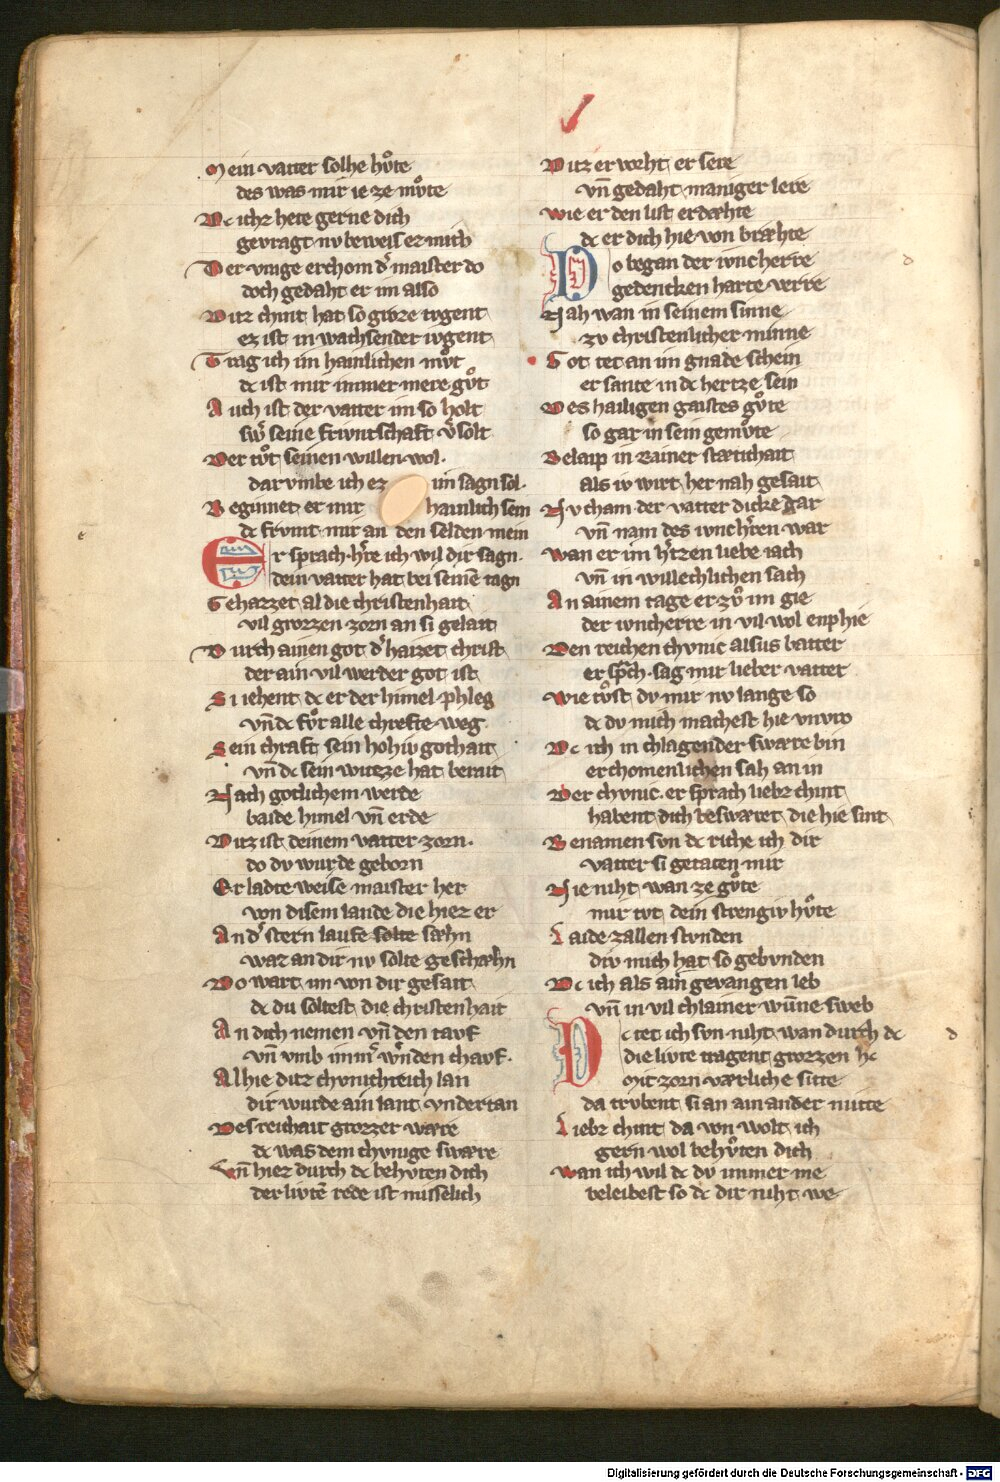 Mein vatter solhe hůte
des was mir ie ze můte
Dc ichz hete gerne dich
gevragt nv beweis ez mich
Der vnige erchom d̾ maister do
doch gedaht er im also
Ditz chint hat so groze tvgent
ez ist in wachsender ivgent
Trag ich im hainlichen můt
dc ist mir immer mere gůt
Auch ist der vatter im so holt
sw̾ seine frivntschaft v̾solt
Der tůt seinen willen wol.
dar vmbe ich ez im sagn sol.
Beginnet er mir hainlich sein
dc frvmt mir an den selden mein
e
Er sprach h̾re ich wil dir sagn.
dein vatter hat bei seinē tagn
Gehazzet al die christenhait
vil grozzen zorn an si gelait
Durch ainen got d̾ haizet christ
der ain vil werder got ist
Si iehent dc er der himel phleg
vn̄ dc fůr alle chrefte weg
Sein chraft sein hohiv gothait
vn̄ dc sein witzze hat berait
Nach gotlichem werde
baide himel vn̄ erde
Ditz ist deinem vatter zorn.
do dv wurde geborn
Er ladte weise maister her
von disem lande die hiez er
An d̾ stern laufe solte sæhn
waz an dir nv solte geschæhn
Do wart im von dir gesait
dc du soltest die christenhait
An dich nemen vn̄ den tavf
vn̄ vmb imm̾ w̾nden chavf.
Alhie ditz chvnichreich lan
dir wurde ain lant vndertan
Des reichait grozzer wære
dc was dem chvnige swære
Vn̄ hiez durch dc behvten dich
der livtē rede ist misselich
Ditz er vorht er sere
vn̄ gedaht maniger lere
Wie er den list erdæhte
dc er dich hie von bræhte
Do began der ivncherre
gedencken harte verre
d
Nah wan in seinem sinne
zv christenlicher minne
Got tet an im gnade schein
er sante in dc hertze sein
Des hailigen gaistes gůte
so gar in sein gemůte
Belaip in Rainer stætichait
als iv wirt her nah gesait
Nv cham der vatter dicke dar
vn̄ nam des ivnch̾ren war
Wan er im h̾tzen liebe iach
vn̄ in willechlichen sach
An ainem tage er zů im gie
der ivncherre in vil wol enphie
Den reichen chvnic alsus batter
er sp̾ch. sag mir lieber vatter
Wie tůst dv mir nv lange so
dc dv mich machest hie vnvro
Dc ich in chlagender swære bin
erchomenlichen sah an in
Der chvnic. er sprach liebz chint
habent dich beswæret die hie sint
Benamen svn dc riche ich dir
vatter si getaten mir
Nie niht wan ze gůte
mir tvt dein strengiv hůte
Laide zallen stvnden
div mich hat so gebvnden
Dc ich als ain gevangen leb
vn̄ in vil chlainer wūne sweb
Dc tet ich svn niht wan durch dc
die livte tragent grozzen hc
d
Mit zorn værliche sitte
da trvbent si an ain ander mitte
Liebz chint da von wolt ich
gern wol behůten dich
Wan ich wil dc dv immer me
beleibest so dc dir niht we
Digitalisierung gefördert durch die Deutsche Forschungsgemeinschaft - DFG